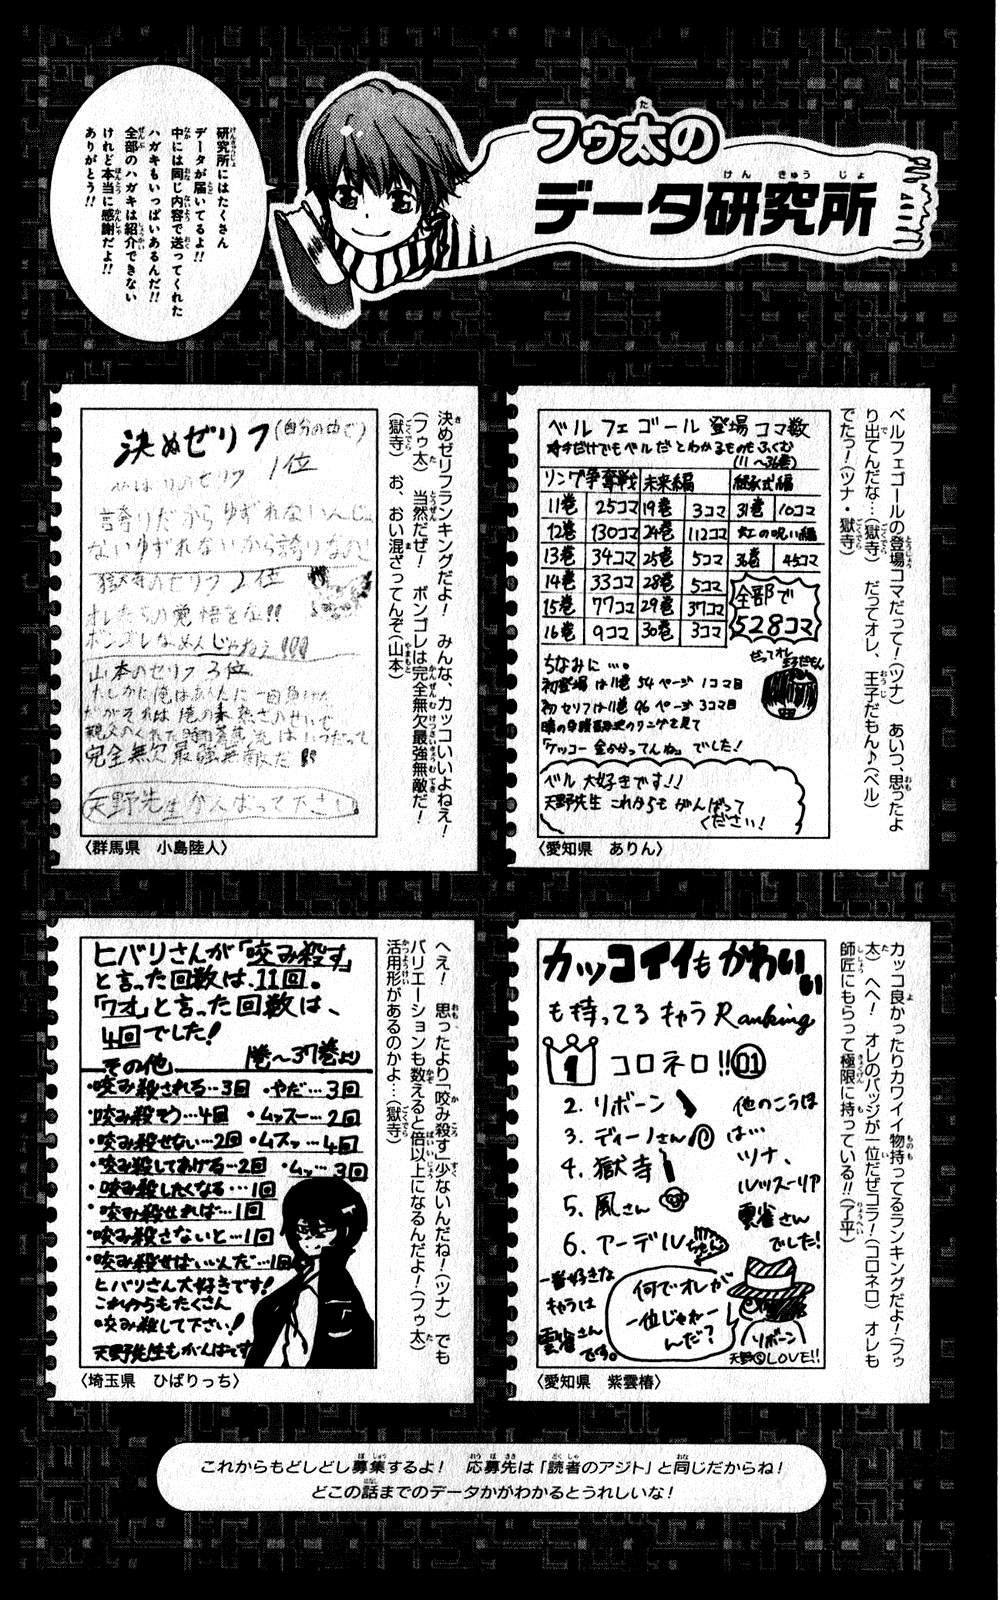 フゥ太の
データ研究所
研究所にはたくさん
データが届いてるよ!!
中には同じ内容で送ってくれた
ハガキもいっぱいあるんだ!!
全部のハガキは紹介できない
けれど本当に感謝だよ!!
ありがとう!!
ベルフェゴールの登場コマだって!(ツナ) あいつ、思ったよ
り出てんだな…(獄寺) だってオレ、王子だもん♪(ベル)
でたっ!(ツナ・獄寺)
ベルフェゴール登場コマ数
(11〜36巻)
リング争奪戦 未来編 継承式編
11巻 25コマ 19巻 3コマ 31巻 10コマ
12巻 130コマ 24巻 112コマ 虹の呪い編
13巻 34コマ 25巻 5コマ 36巻 45コマ
14巻 33コマ 28巻 5コマ
15巻 77コマ 29巻 37コマ
16巻 9コマ 30巻 3コマ
全部で
528コマ
だってオレ
王子だもん
ちなみに…。
初登場は11巻 54ページ 1コマ目
初セリフは11巻 96ページ 3コマ目
「ケッコー金かかってんね」でした!
ベル大好きです!!
天野先生 これからもがんばって
ください!
〈愛知県 ありん〉
決めゼリフランキングだよ! みんな、カッコいいよねえ!
(フゥ太) 当然だぜ! ボンゴレは完全無欠最強無敵だ!
(獄寺) お、おい混ざってんぞ(山本)
決めゼリフ(自分の中で)
1位
誇りだからゆずれないんじゃ
ないゆずれないから誇りなの!
獄寺のゼリフ 2位
オレたちの覚悟をな!!
ボンゴレなめんじゃねえ!!!
山本のゼリフ 3位
たしかに俺はあんたに一回負けた
だがそれは俺の未熟さのせいで
親父のくれた時雨蒼燕流はいつだって
完全無欠最強無敵だ!!
天野先生がんばって下さい
〈群馬県 小島陸人〉
カッコ良かったりカワイイ物持ってるランキングだよ!(フゥ
太) へへ! オレのバッジが一位だぜコラ!(コロネロ) オレも
師匠にもらって極限に持っている!!(了平)
カッコイイもかわいい
も持ってるキャラRanking
1 コロネロ!! 01
2. リボーン
3. ディーノさん
4. 獄寺
5. 風さん
6. アーデル
他のこうほ
は…
ツナ、
ルッスーリア
雲雀さん
でした!
一番好きな
キャラは
雲雀さん
です。
何でオレが
一位じゃねー
んだ?
リボーン
LOVE!!
〈愛知県 紫雲椿〉
へえ! 思ったより「咬み殺す」少ないんだね!(ツナ) でも
バリエーションも数えると倍以上になるんだよ!(フゥ太)
活用形があるのかよ…(獄寺)
ヒバリさんが「咬み殺す」
と言った回数は、11回。
「ワオ」と言った回数は、
4回でした!
1巻〜37巻より
その他
・咬み殺される…3回 ・やだ…3回
・咬み殺そう…4回 ・ムッスー…2回
・咬み殺せない…2回 ・ムスッ…4回
・咬み殺してあげる…2回 ・ムッ…3回
・咬み殺したくなる…1回
・咬み殺せれば…1回
・咬み殺さないと…1回
・咬み殺せばいいんだ…1回
ヒバリさん大好きです!
これからもたくさん
咬み殺して下さい!
天野先生もがんばです
〈埼玉県 ひばりっち〉
これからもどしどし募集するよ! 応募先は「読者のアジト」と同じだからね!
どこの話までのデータかがわかるとうれしいな!